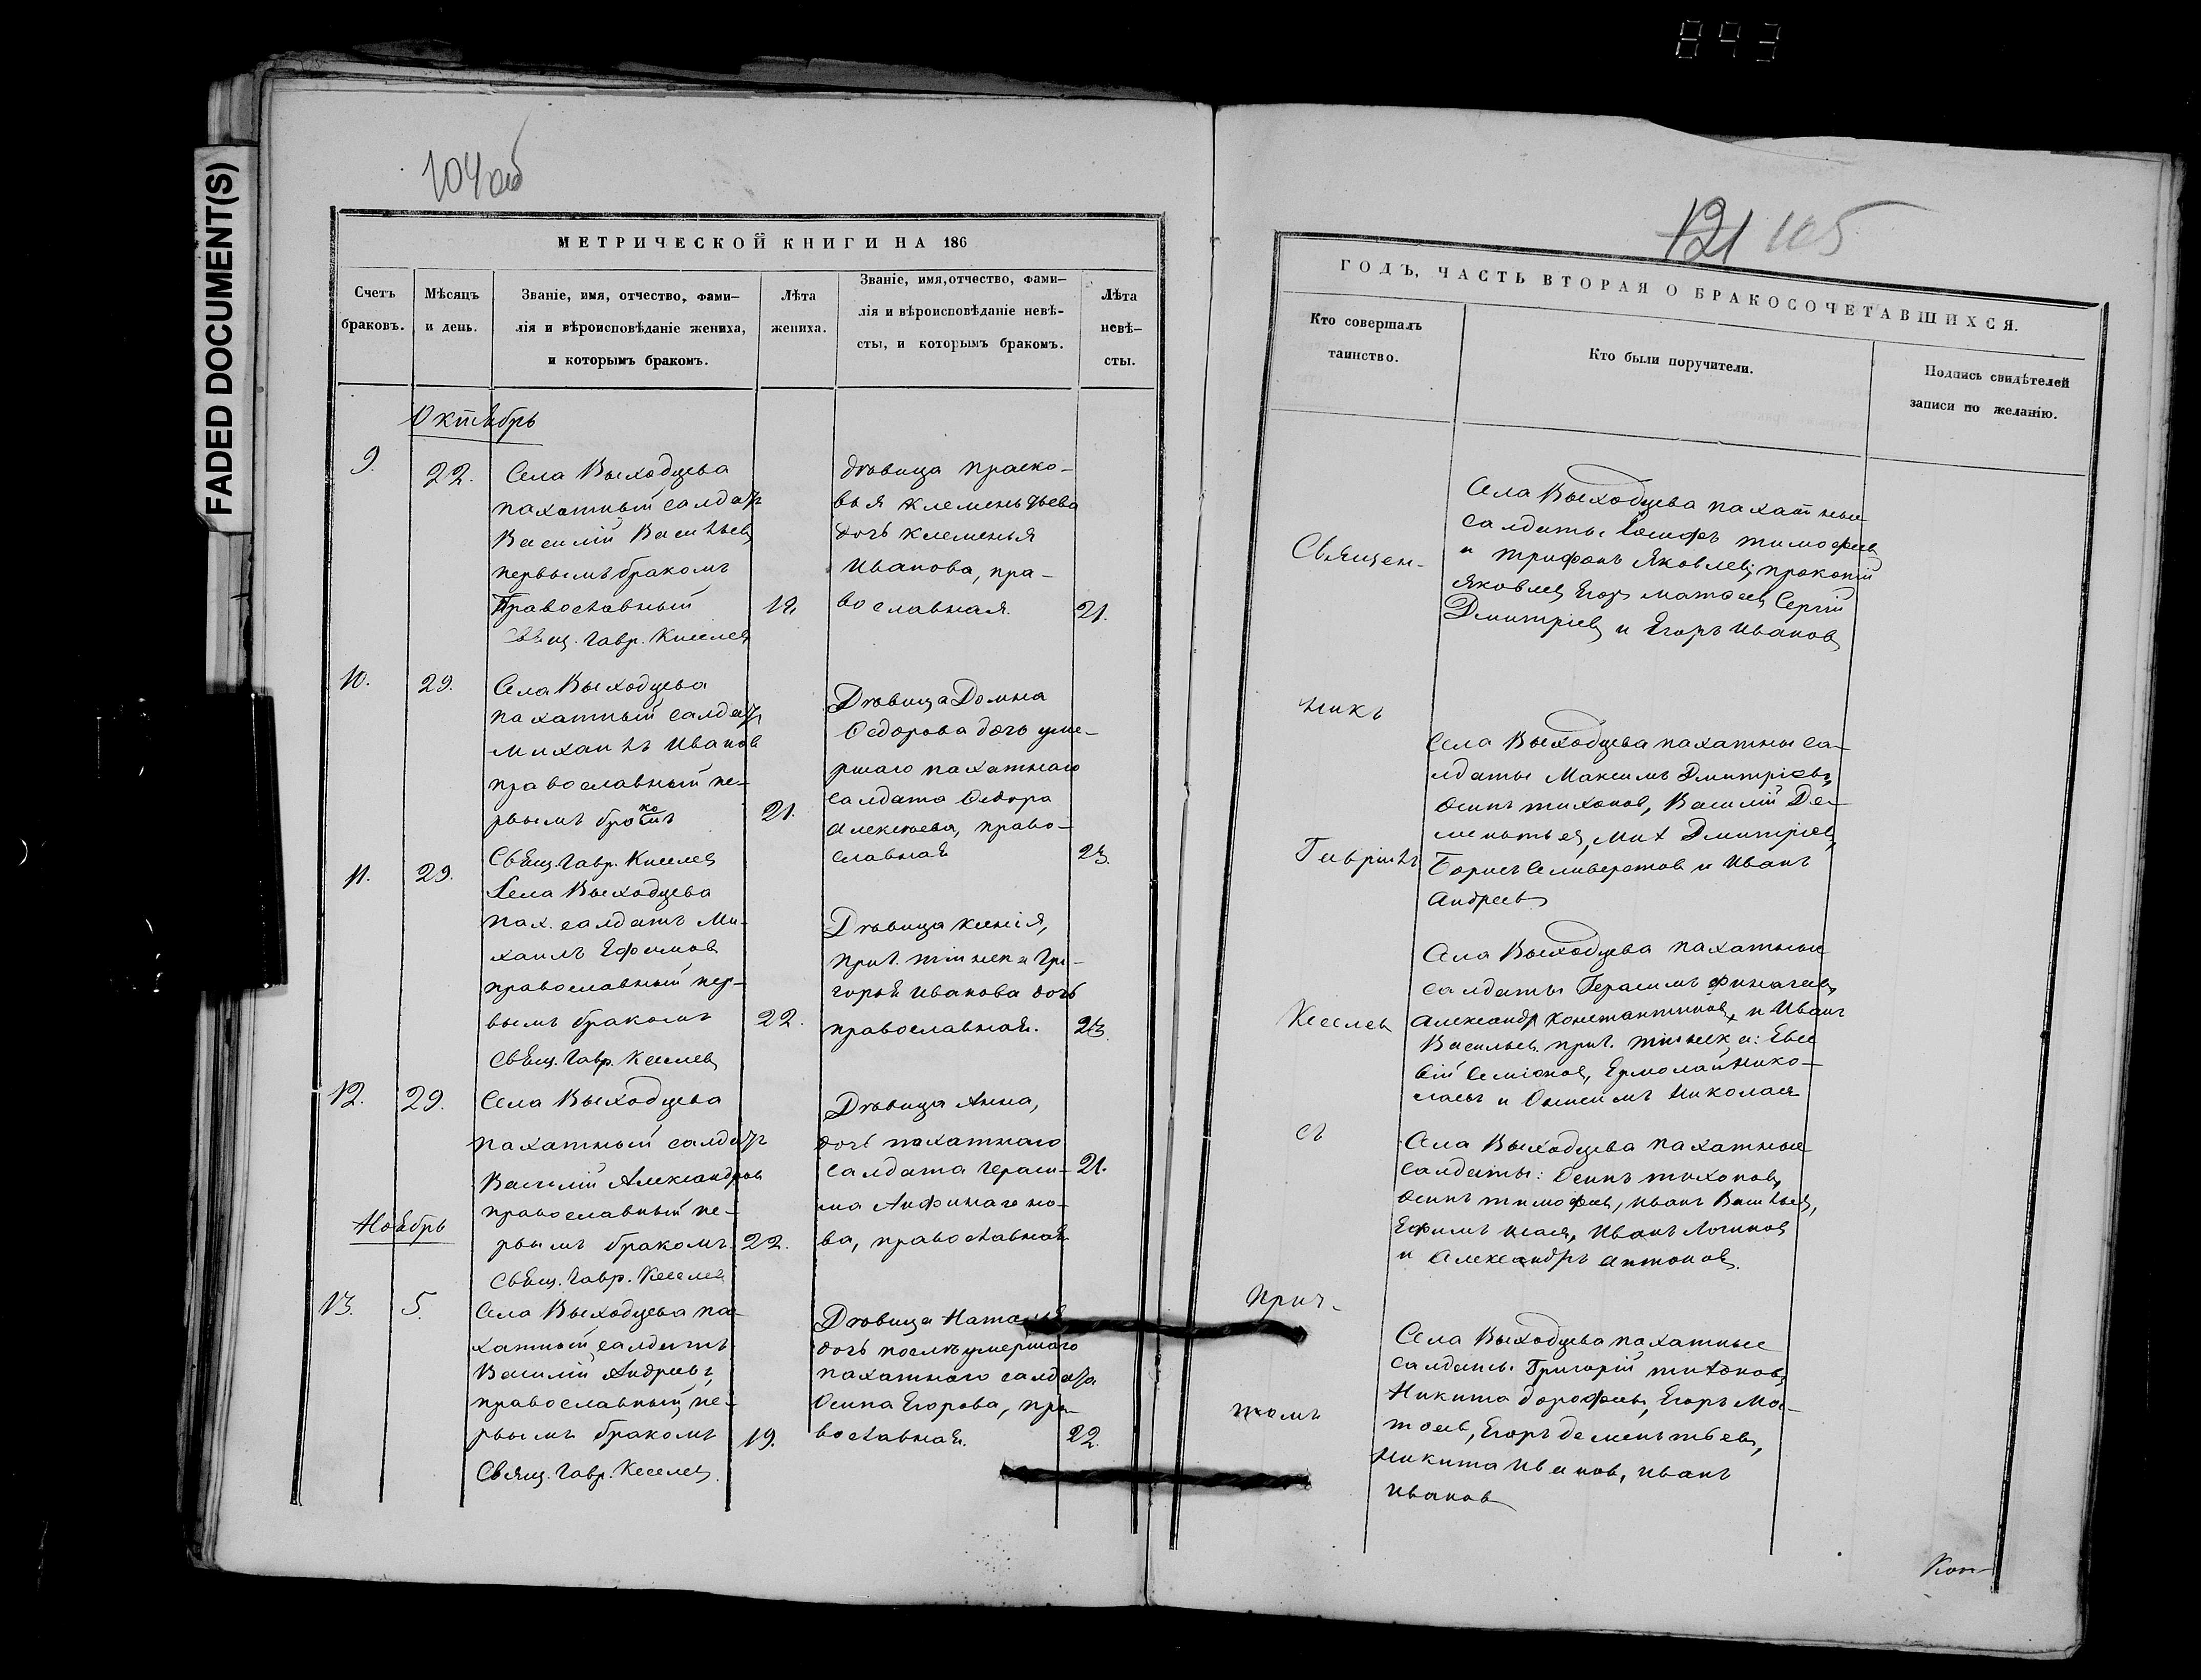 893
FADED DOCUMENT(S)
104 об
МЕТРИЧЕСКОЙ КНИГИ НА 186
Счетъ браковъ.
Мѣсяцъ и день.
Званіе, имя, отчество, фами-
лія и вѣроисповѣданіе жениха,
и которымъ бракомъ.
Лѣта жениха.
Званіе, имя, отчество, фами-
лія и вѣроисповѣданіе невѣ-
сты, и которымъ бракомъ.
Лѣта
невѣ-
сты.
Октябрь
9.
22.
Села Выходцева
пахатный салдатъ
Василій Васильевъ
первымъ бракомъ
Православный
Свящ. Гавр. Киселев
девица праско-
вья Клеменьтьева
дочь Клеменья
Иванова, пра-
вославная.
21.
10.
29.
Села Выходцева
пахатный салдатъ
Михаилъ Иванов
православный пе-
рвымъ бракомъ
21.
Свящ. Гавр. Киселев
Девица Домна
Федорова дочь уме-
ршаго пахатнаго
салдата Федора
Алексеева, право-
славная
23.
11.
29.
Села Выходцева
пах. салдатъ Ми-
хаилъ Ефимов
православный пер-
вымъ бракомъ
22.
Свящ. Гавр. Киселев
Девица Ксенія,
Гри-
горья Иванова дочь
православная.
23.
12.
29.
Села Выходцева
пахатный салдатъ
Василій Александров
православный пе-
рвымъ бракомъ.
22.
Свящ. Гавр. Киселев
Девица Анна,
дочь пахатнаго
салдата Гераси-
ма Анфиногено-
ва, православная
21.
Ноябрь
13.
5.
Села Выходцева па-
хатный салдатъ
Василій Андреевъ,
православный, пе-
рвымъ бракомъ
19.
Свящ. Гавр. Киселев.
Девица Наталья
дочь после умершаго
пахатного салдата
Осипа Егорова, пра-
вославная.
22.
121 105
ГОДЪ, ЧАСТЬ ВТОРАЯ О БРАКОСОЧЕТАВШИХСЯ.
Кто совершалъ
таинство.
Кто были поручители.
Подпись свидѣтелей
записи по желанію.
Священ-
никъ
Гавріилъ
Киселев
съ
прич-
томъ
Села Выходцева пахатные
салдаты Іосифъ Тимофеев
и Трифонъ Яковлев, прокопій
Яковлев Егоръ Матвеев Сергій
Дмитріев и Егоръ Иванов
Села Выходцева пахатны са-
лдаты Максимъ Дмитріевъ,
Осипъ Тихонов, Василій Де-
ментьев, Мих Дмитріев,
Борисъ Селиверстов и Иванъ
Андреев
Села Выходцева пахатные
салдаты Герасимъ Финагеев,
Александр Константинов, и Иванъ
Васильев.
Семіонов, Ермолай Нико-
лаевъ и Онисимъ Николаев
Села Выходцева пахатные
салдаты: Осипъ Тихонов,
Осипъ Тимофеев, Иванъ Васильев,
Ефимъ Исаев, Иванъ Логинов
и Александръ Антонов.
Села Выходцева пахатные
салдаты Григорій Тихонов,
Никита Дорофеев, Егоръ Ма-
твеев, Егоръ Дементьев,
Никита Иванов, Иванъ
Иванов
Кон-